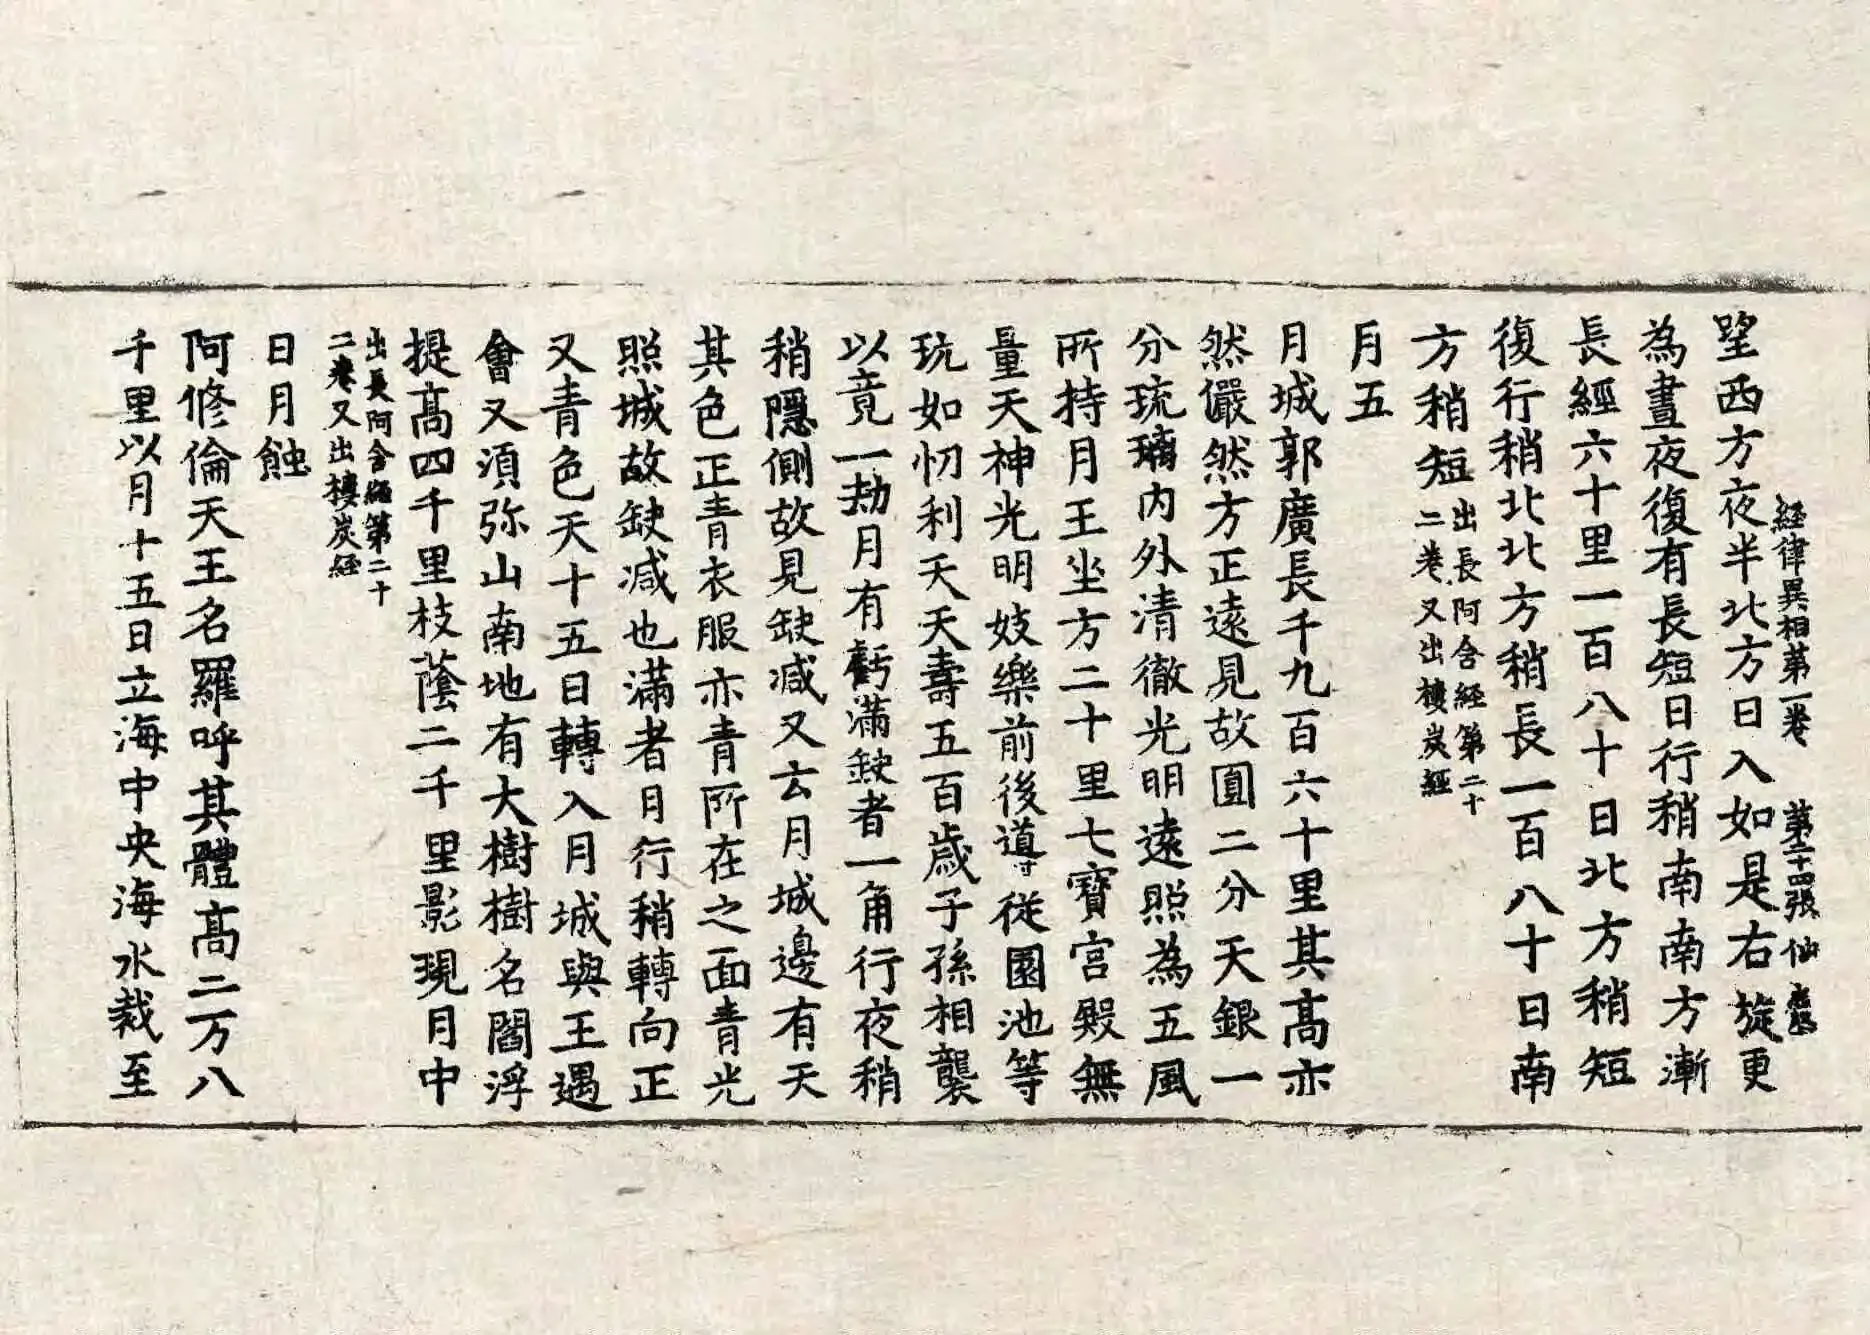 經律異相第一卷 第二十四張 仙
望西方夜半北方日入如是右旋更
為晝夜復有長短日行稍南南方漸
長經六十里一百八十日北方稍短
復行稍北北方稍長一百八十日南
方稍短出長阿含經第二十
二卷又出樓炭經
月五
月城郭廣長千九百六十里其高亦
然儼然方正遠見故圓二分天銀一
分琉璃內外清徹光明遠照為五風
所持月王坐方二十里七寶宮殿無
量天神光明妓樂前後導從園池等
玩如忉利天天壽五百歲子孫相襲
以竟一劫月有虧滿缺者一角行夜稍
稍隱側故見缺減又云月城邊有天
其色正青衣服亦青所在之面青光
照城故缺減也滿者月行稍轉向正
又青色天十五日轉入月城與王遇
會又須弥山南地有大樹樹名閻浮
提高四千里枝蔭二千里影現月中
出長阿含經第二十
二卷又出樓炭經
日月蝕
阿修倫天王名羅呼其體高二万八
千里以月十五日立海中央海水裁至